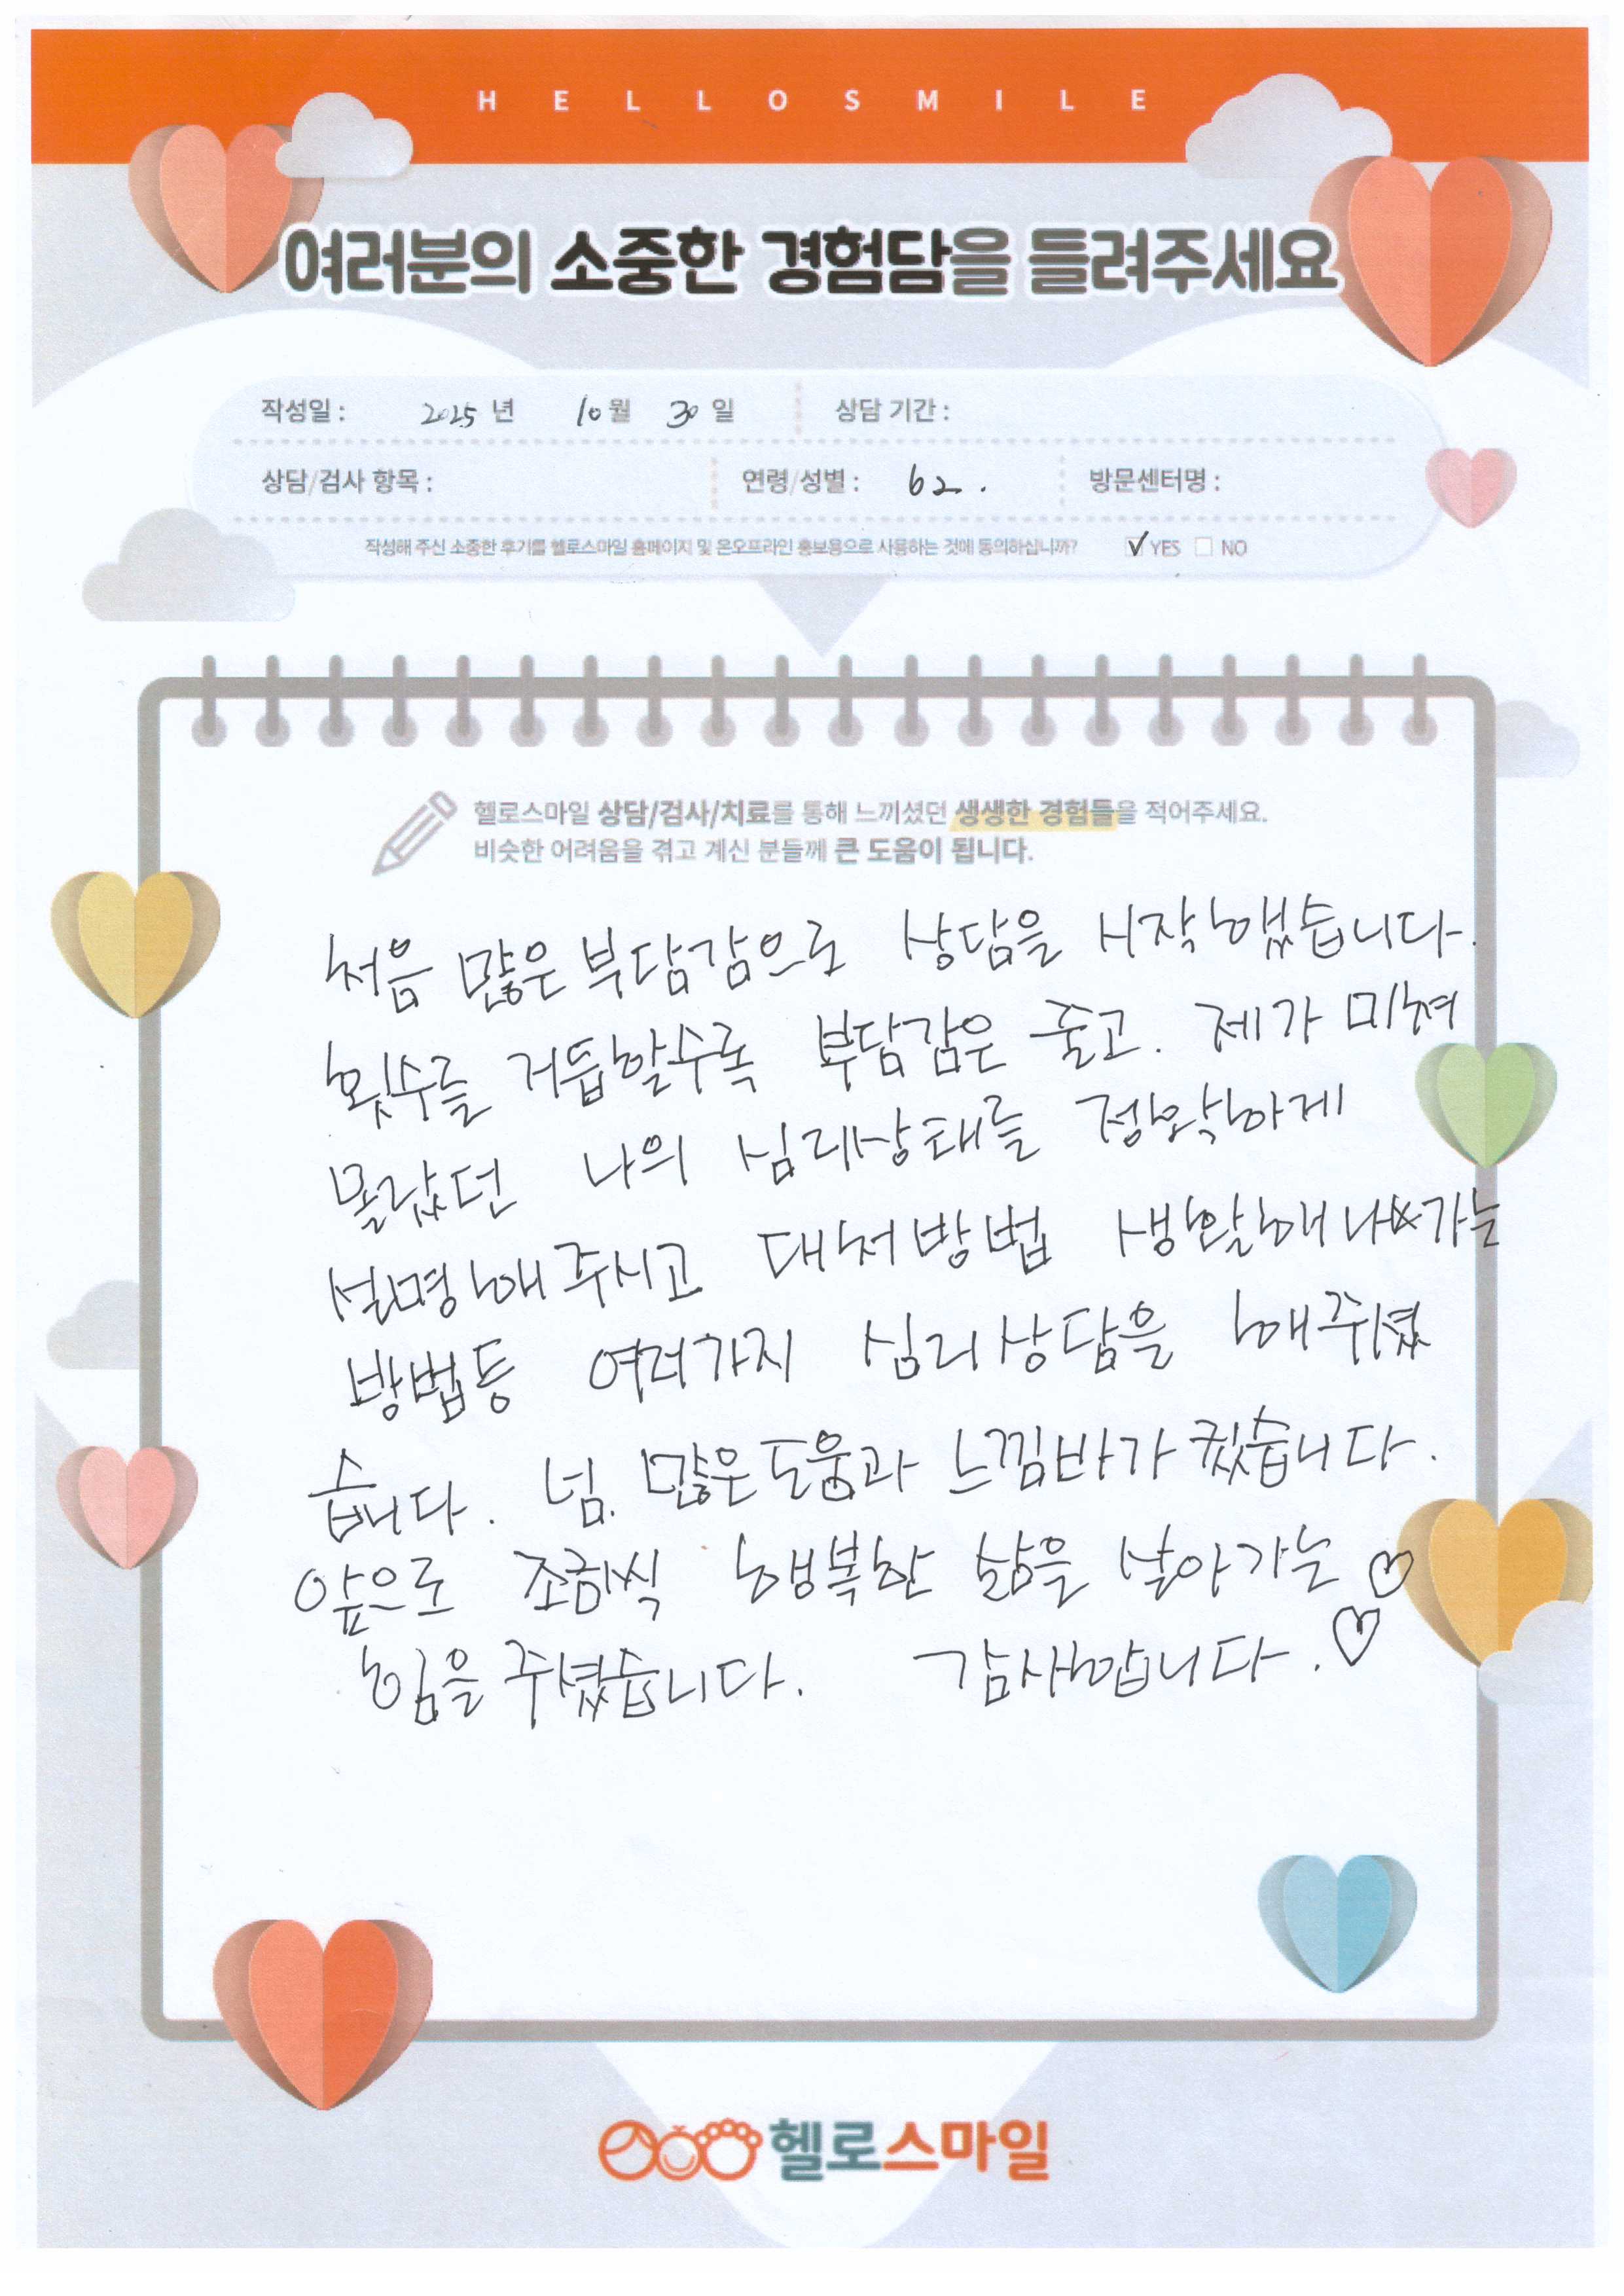 HELLOSMILE
여러분의 소중한 경험담을 들려주세요
작성일 : 2025 년 10 월 30 일 상담 기간 :
상담/검사 항목 : 연령/성별 : 62. 방문센터명 :
작성해 주신 소중한 후기를 헬로스마일 홈페이지 및 온오프라인 홍보용으로 사용하는 것에 동의하십니까? ✓ YES □ NO
헬로스마일 상담/검사/치료를 통해 느끼셨던 생생한 경험들을 적어주세요.
비슷한 어려움을 겪고 계신 분들께 큰 도움이 됩니다.
처음 많은 부담감으로 상담을 시작했습니다.
횟수를 거듭할수록 부담감은 줄고. 제가 미쳐
몰랐던 나의 심리상태를 정확하게
설명해주시고 대처방법 생활해나가는
방법등 여러가지 심리상담을 해주셨
습니다. 넘. 많은도움과 느낌바가 컸습니다.
앞으로 조금씩 행복한 삶을 살아가는 ♡
힘을 주셨습니다. 감사합니다. ♡
헬로스마일